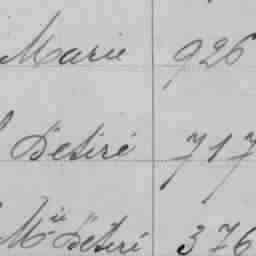 Marie 926
Désiré 717
Mie Désiré 376